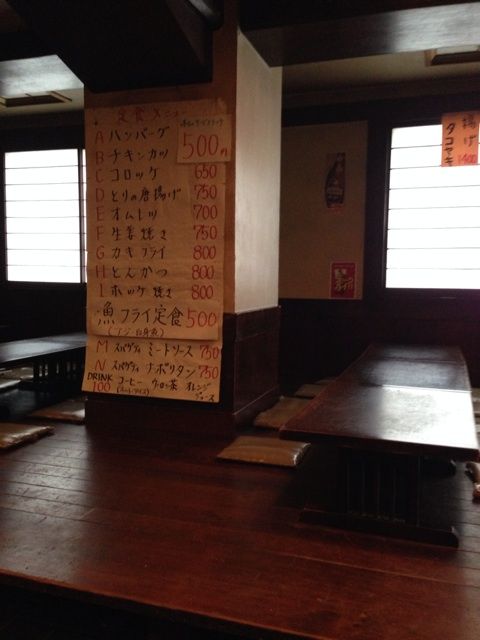 定食メニュー
A ハンバーグ
B チキンカツ
500円
C コロッケ 650
D とりの唐揚げ 750
E オムレツ 700
F 生姜焼き 750
G カキフライ 800
H とんかつ 800
I ホッケ焼き 800
魚フライ定食 500
M スパゲティ ミートソース 750
N スパゲティ ナポリタン 750
DRINK 100 コーヒー ウーロン茶 オレンジ
ジュース
揚げ
タコヤキ
400